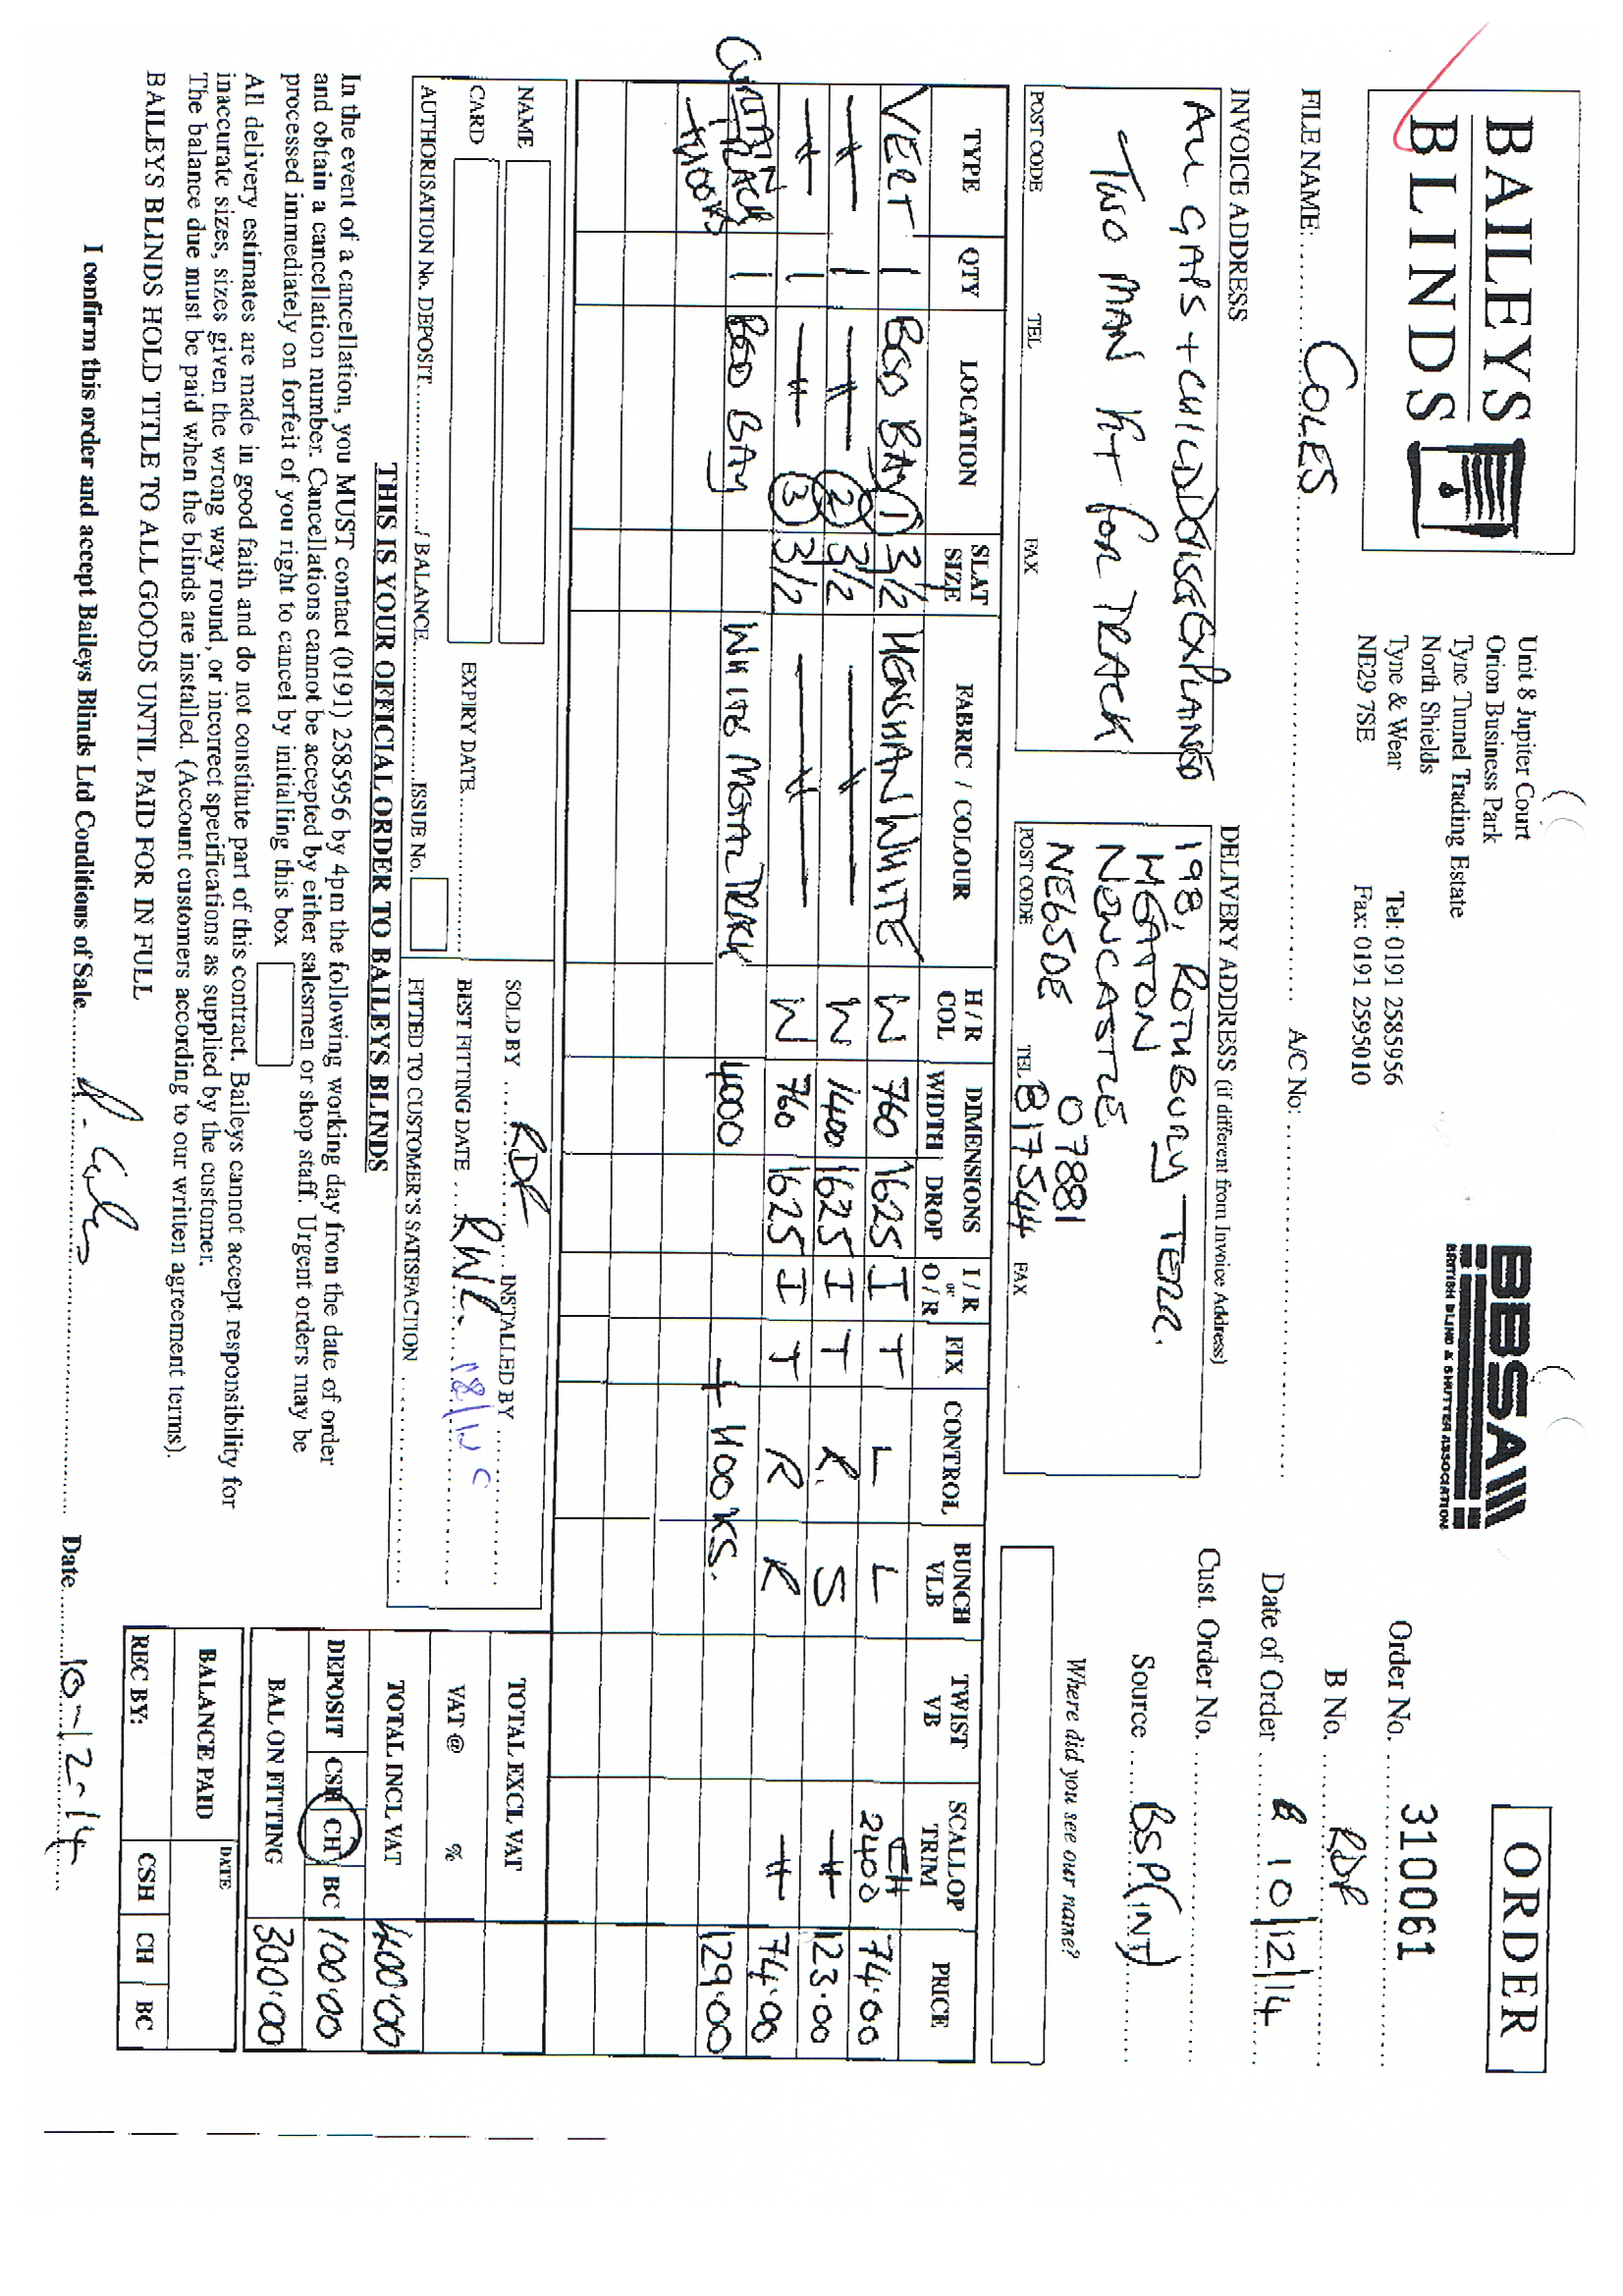 BAILEYS
BLINDS
Unit 8 Jupiter Court
Orion Business Park
Tyne Tunnel Trading Estate
North Shields
Tyne & Wear
NE29 7SE
Tel: 0191 2585956
Fax: 0191 2595010
BBSA
BRITISH BLIND & SHUTTER ASSOCIATION
ORDER
Order No. 310061
B No. RDR
Date of Order 10/12/14
Cust. Order No.
Source BSP (INT)
Where did you see our name?
FILE NAME: COLES A/C No:
INVOICE ADDRESS
All GAPS + CHILD EXPLAINED
TWO MAN Kit for TRACK
POST CODE TEL FAX
DELIVERY ADDRESS (if different from Invoice Address)
198, ROTHBURY TERR.
HEATON
NEWCASTLE
NE65DE 07881
POST CODE TEL 817544 FAX
TYPE QTY LOCATION SLAT SIZE FABRIC / COLOUR H / R COL DIMENSIONS WIDTH DROP I / R or O / R FIX CONTROL BUNCH VLB TWIST VB SCALLOP TRIM PRICE
VERT 1 BED BAY 1 3½ HENSHAN WHITE W 760 1625 I T L L 2400 CH 74.00
〃 1 〃 2 3½ 〃 W 1400 1625 I T R. S 〃 123.00
〃 1 〃 3 3½ 〃 W 760 1625 I T R R 〃 74.00
CURTAIN TRACK 1 BED BAY WHITE METAL TRACK 4000 + HOOKS. 129.00
+ HOOKS
NAME
CARD EXPIRY DATE
AUTHORISATION No. DEPOSIT / BALANCE ISSUE No.
SOLD BY RDR INSTALLED BY
BEST FITTING DATE RWR 18/12 C
FITTED TO CUSTOMER'S SATISFACTION
TOTAL EXCL VAT
VAT @ %
TOTAL INCL VAT 400.00
DEPOSIT CSH CH BC 100.00
BAL ON FITTING 300.00
BALANCE PAID DATE
REC BY: CSH CH BC
THIS IS YOUR OFFICIAL ORDER TO BAILEYS BLINDS
In the event of a cancellation, you MUST contact (0191) 2585956 by 4pm the following working day from the date of order
and obtain a cancellation number. Cancellations cannot be accepted by either salesmen or shop staff. Urgent orders may be
processed immediately on forfeit of you right to cancel by initialling this box
All delivery estimates are made in good faith and do not constitute part of this contract. Baileys cannot accept responsibility for
inaccurate sizes, sizes given the wrong way round, or incorrect specifications as supplied by the customer.
The balance due must be paid when the blinds are installed. (Account customers according to our written agreement terms).
BAILEYS BLINDS HOLD TITLE TO ALL GOODS UNTIL PAID FOR IN FULL
I confirm this order and accept Baileys Blinds Ltd Conditions of Sale Date 10-12-14